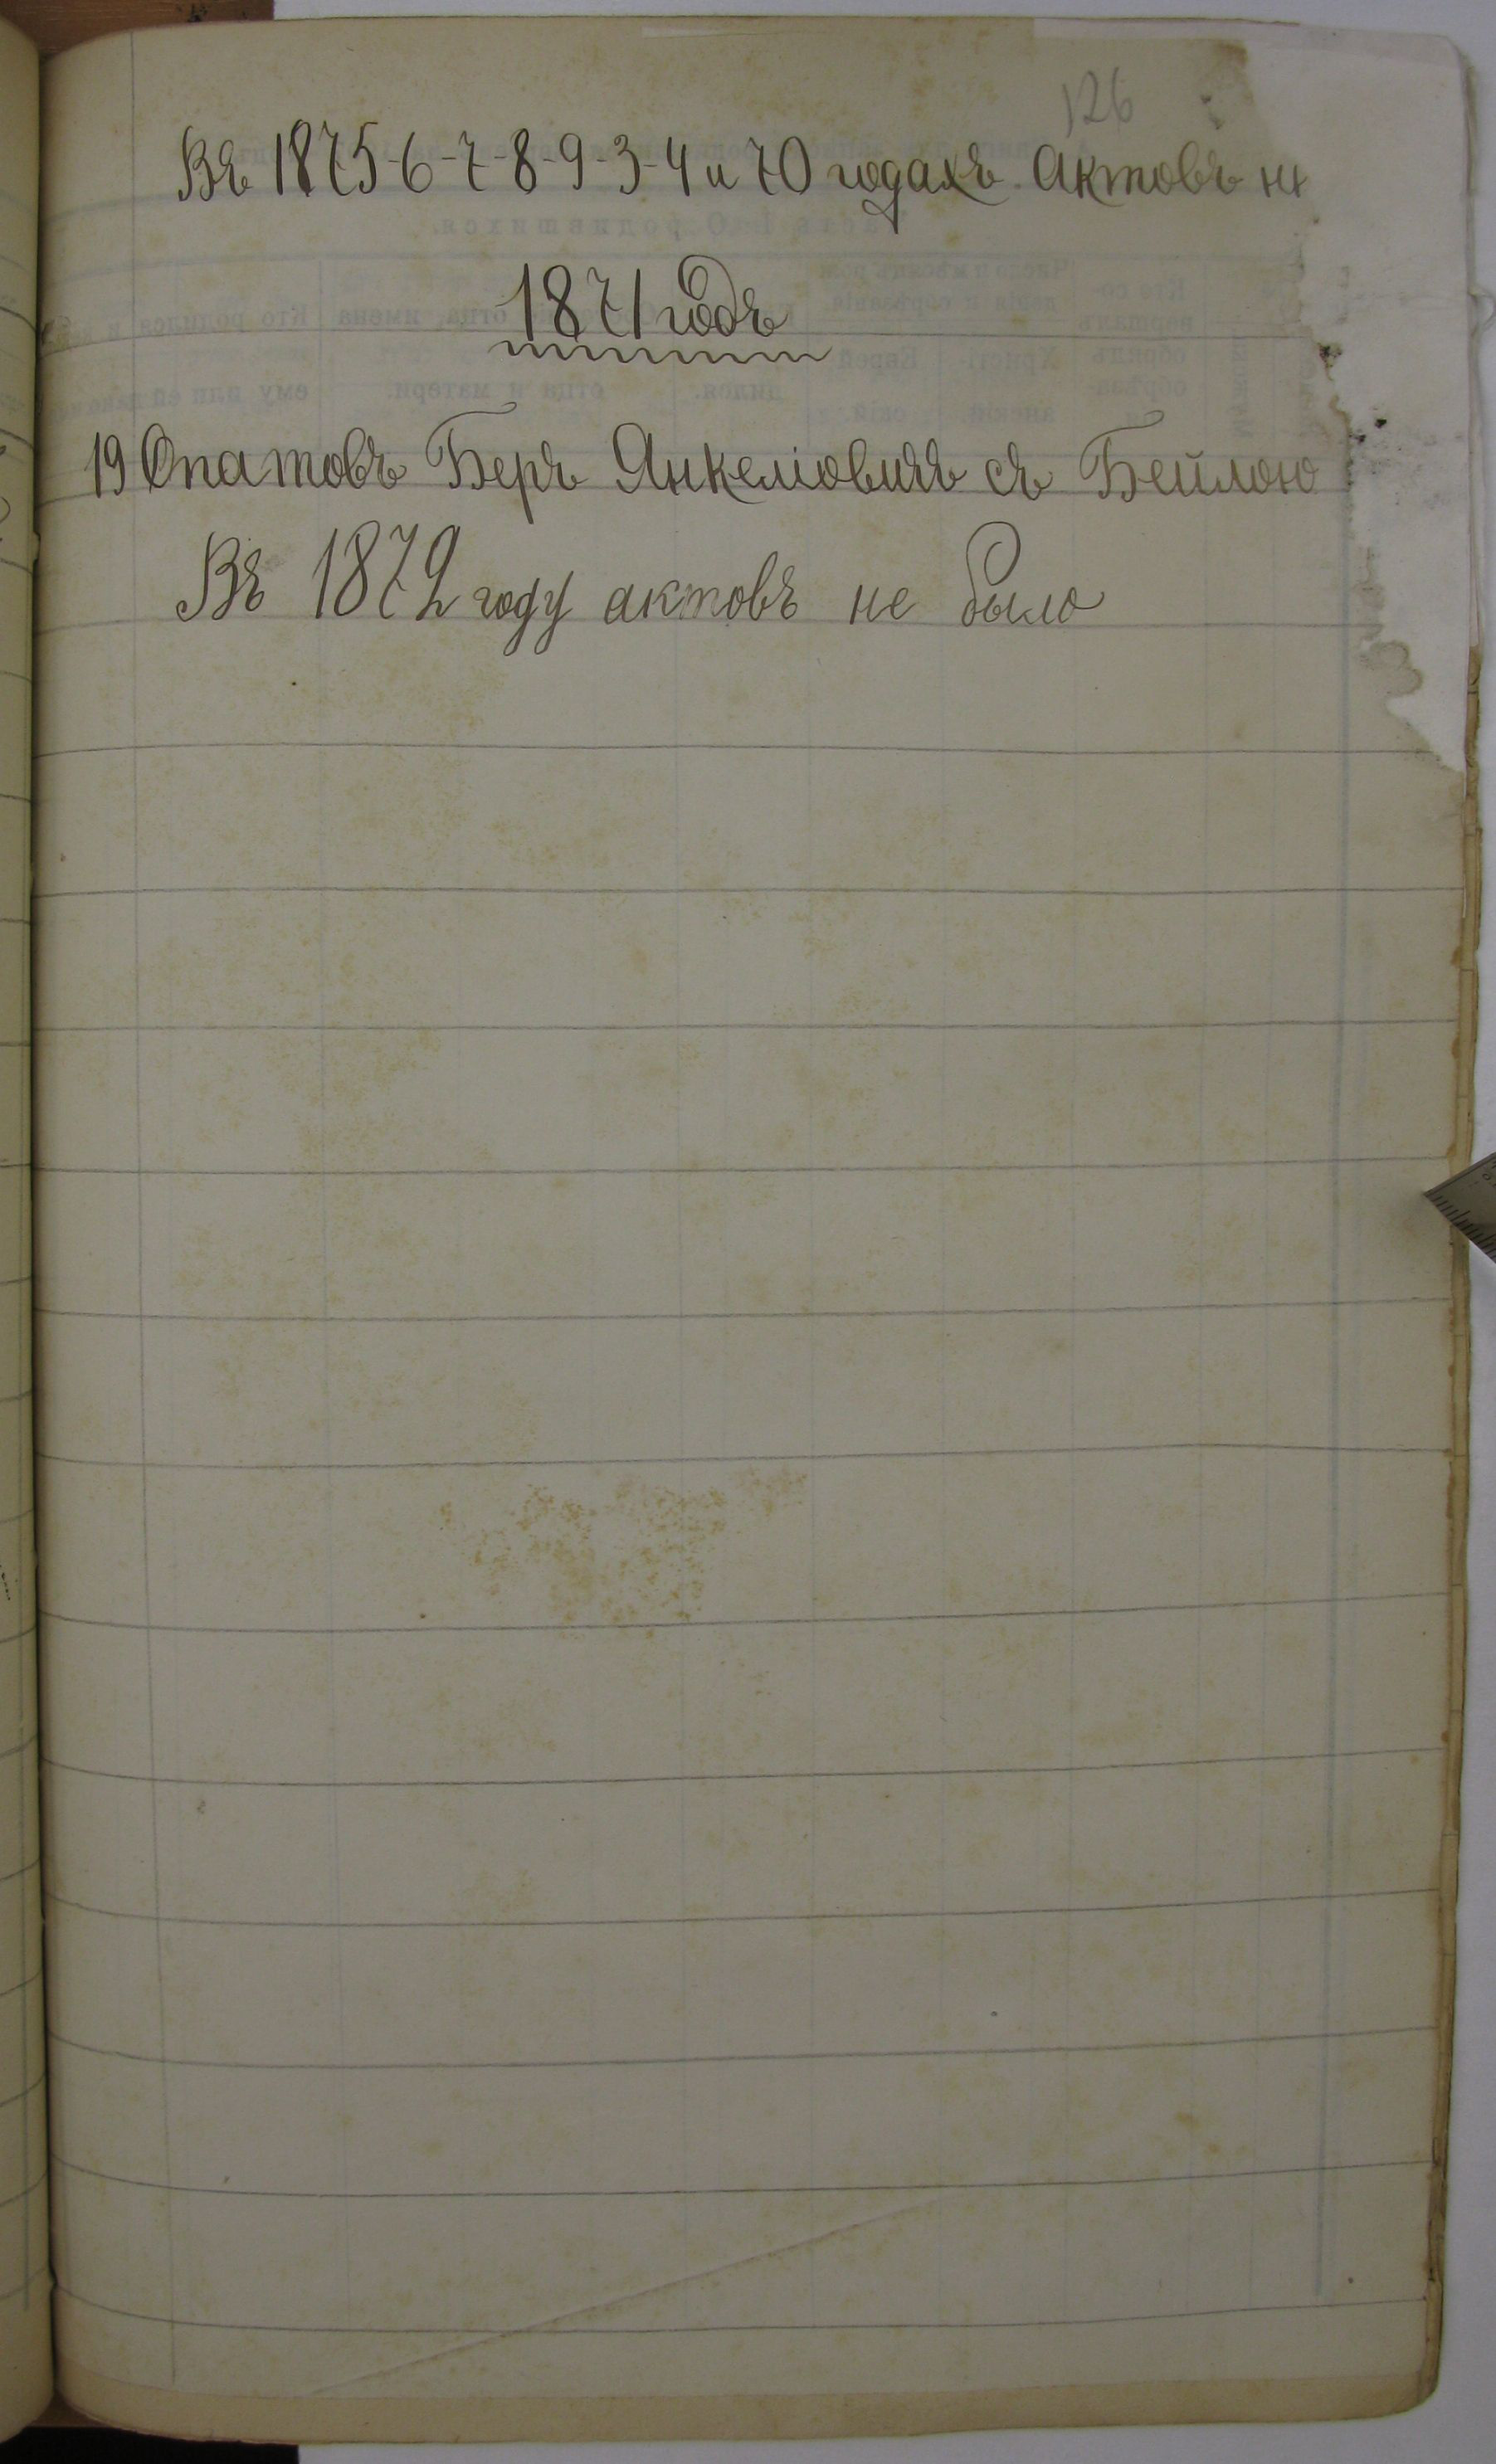 126
Въ 1875-6-7-8-9-3-4 и 70 годахъ Актовъ не
1871 годъ
19 Опатовъ Беръ Янкеліовичъ съ Бейлою
Въ 1872 году актовъ не было